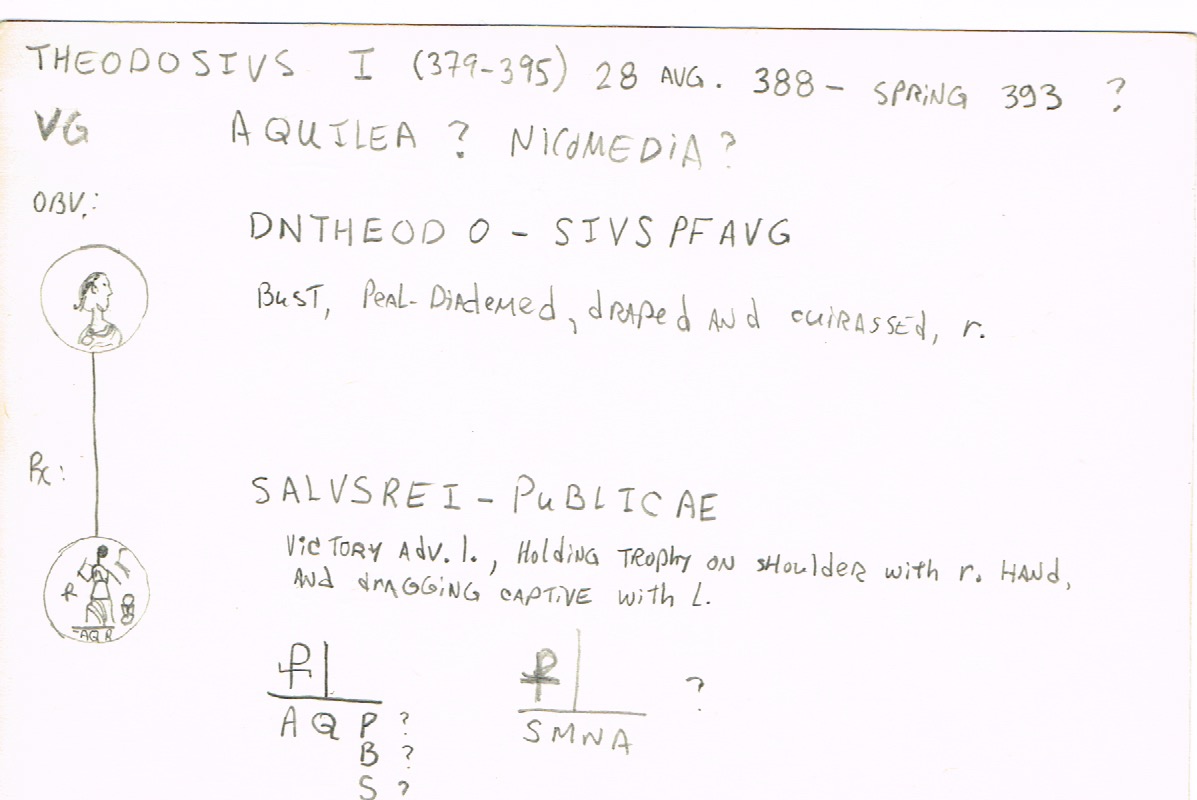 THEODOSIVS I (379-395) 28 AVG. 388 - SPRiNG 393 ?
VG AQUILEA ? NiCOMEDiA ?
OBV.:
DNTHEODO - SIVSPFAVG
BUST, PeAL-DiAdemed, dRAPed AND cuiRASSEd, r.
Rx:
SALVSREI - PuBLICAE
VicTORY Adv. l., Holding TROphy ON sHoulDER with r. HAND,
AND dRAGGiNG CAPTiVE with L.
AQP ?
B ?
S ?
SMNA
?
R
AQP